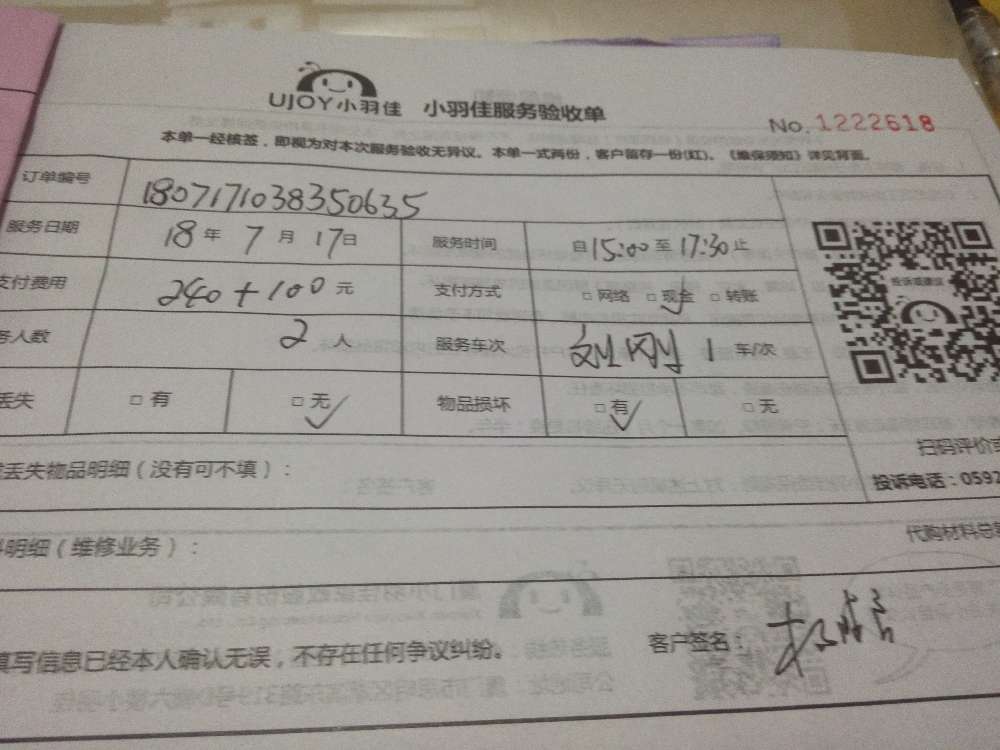 UJOY小羽佳 小羽佳服务验收单
No. 1222618
本单一经核签，即视为对本次服务验收无异议。本单一式两份，客户留存一份(红)。《维保须知》详见背面。
订单编号 1807171038350635
服务日期 18年 7月 17日 服务时间 自15:00至17:30止
支付费用 240+100元 支付方式 □网络 □现金 □转账
务人数 2人 服务车次 刘刚 1车/次
丢失 □有 □无 物品损坏 □有 □无
投诉或建议
扫码评价或
投诉电话：0592
丢失物品明细（没有可不填）：
明细（维修业务）：
代购材料总
填写信息已经本人确认无误，不存在任何争议纠纷。 客户签名：